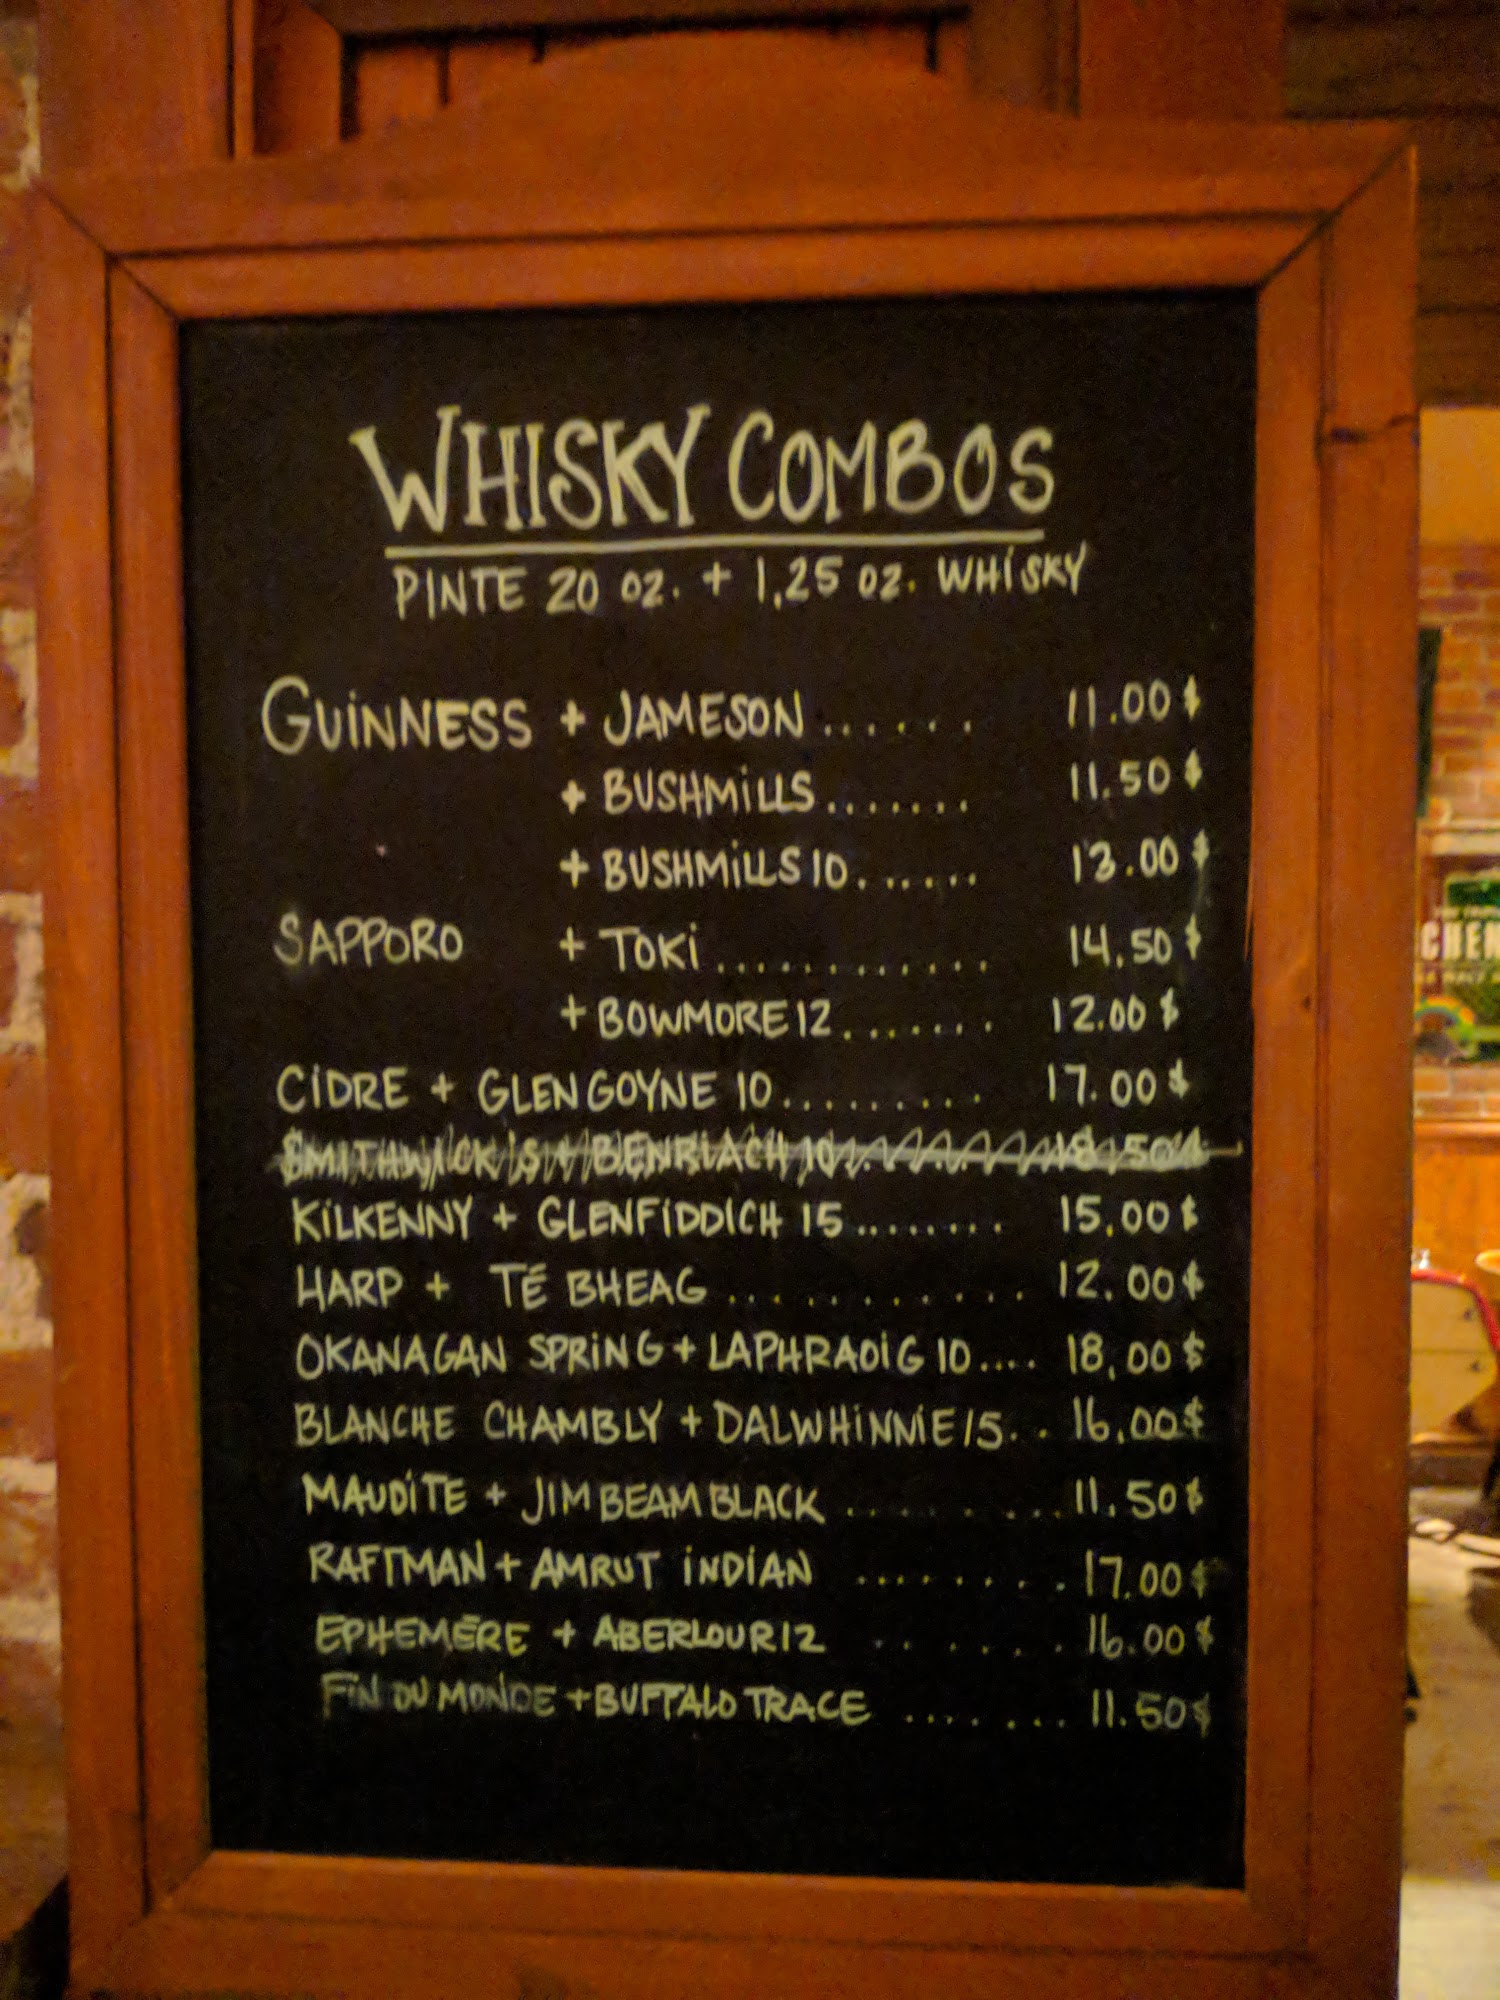 WHISKY COMBOS
PINTE 20 OZ. + 1,25 OZ. WHISKY
GUINNESS + JAMESON...... 11.00$
+ BUSHMILLS....... 11.50$
+ BUSHMILLS 10....... 13.00$
SAPPORO + TOKI............ 14.50$
+ BOWMORE 12....... 12.00$
CIDRE + GLENGOYNE 10......... 17.00$
SMITHWICK'S + BENRIACH 10....... 18.50$
KILKENNY + GLENFIDDICH 15........ 15.00$
HARP + TÉ BHEAG ............ 12.00$
OKANAGAN SPRING + LAPHRAOIG 10.... 18,00$
BLANCHE CHAMBLY + DALWHINNIE 15.. 16,00$
MAUDITE + JIM BEAM BLACK ........ 11.50$
RAFTMAN + AMRUT INDIAN ......... 17.00$
EPHEMÈRE + ABERLOUR 12 ....... 16.00$
FIN DU MONDE + BUFFALO TRACE ........ 11.50$
CHEN